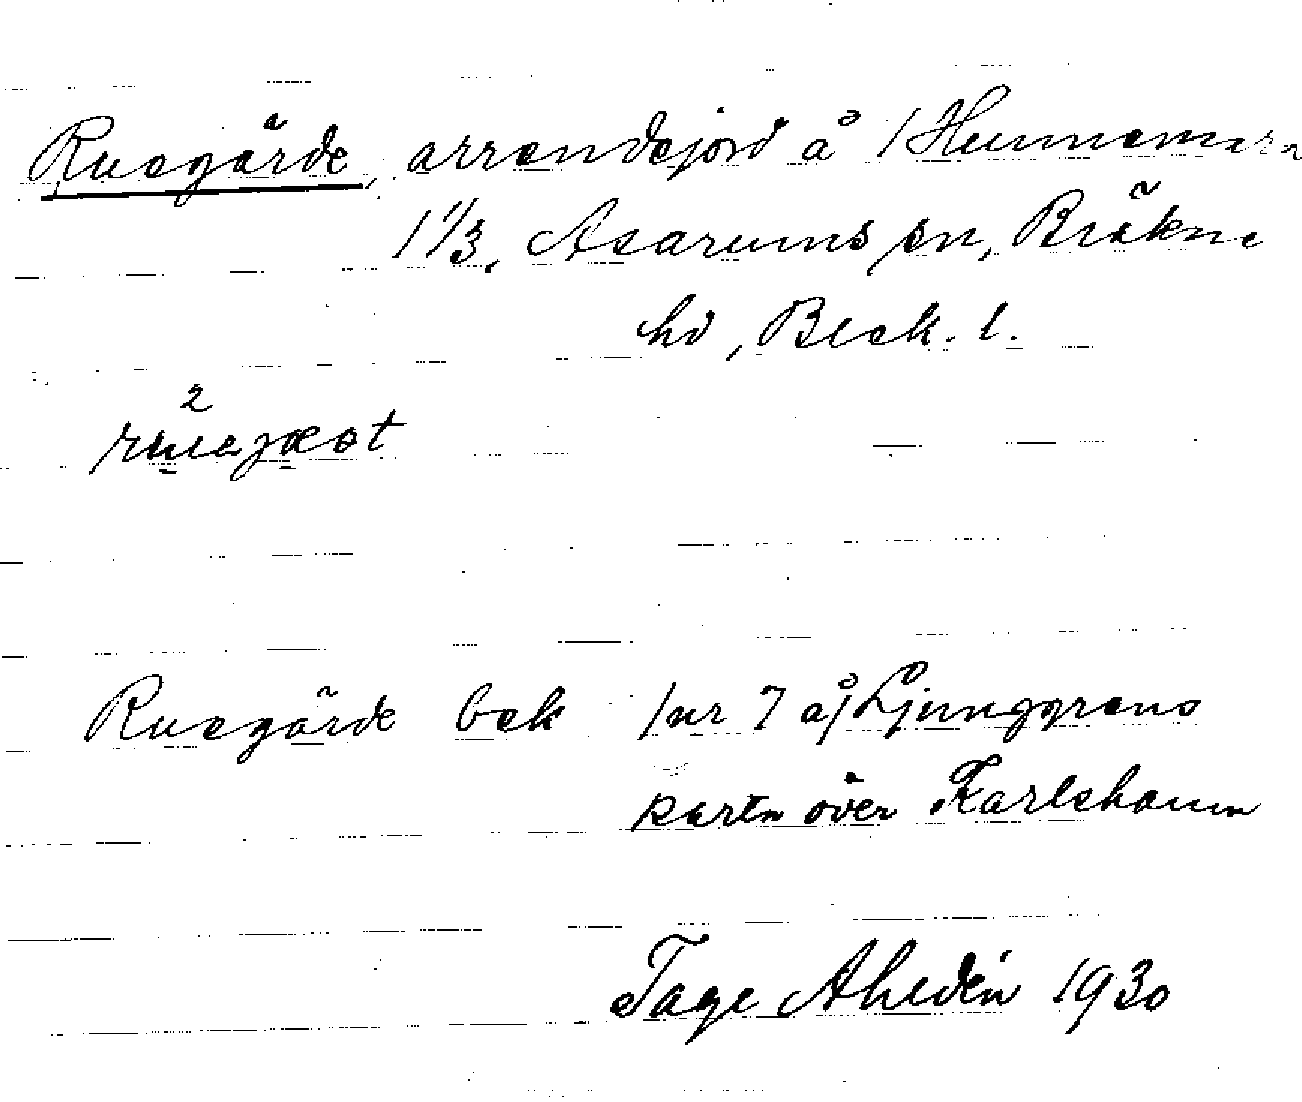 Ruegärde, arrendejord å 1 Hunnemara
1 1/3, Asarums sn, Bräkne
hd, Blek. l.
Ruegärde bek (nr 7 å) Ljunggrens
karta över Karlshamn
Tage Ahldén 1930